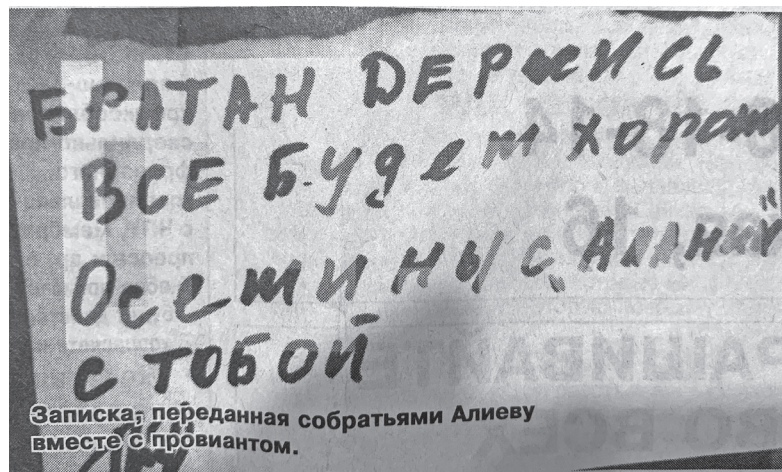 БРАТАН DЕРЖИСЬ
ВСЕ Будет хорошо
Осетины с „Аланий"
С ТОБОЙ
Записка, переданная собратьями Алиеву
вместе с провиантом.